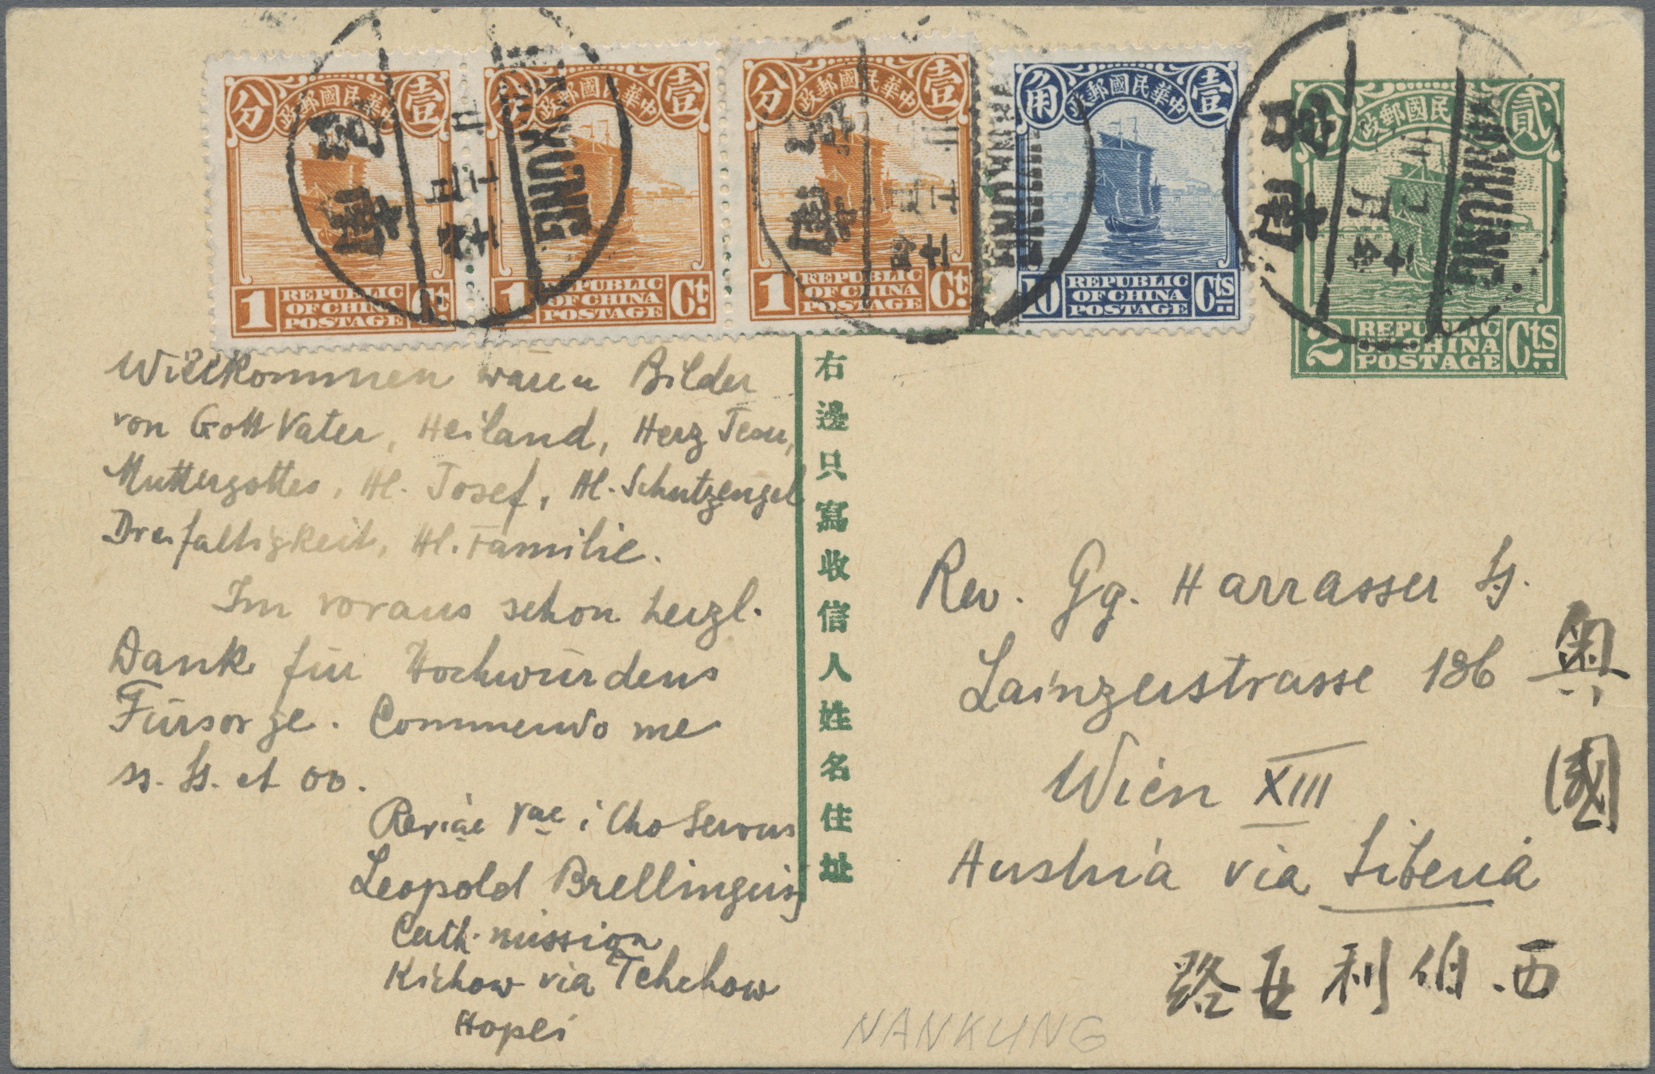 分 中華民國郵政 壹
1 REPUBLIC OF CHINA POSTAGE Ct.
分 中華民國郵政 壹
1 REPUBLIC OF CHINA POSTAGE Ct.
分 中華民國郵政 壹
1 REPUBLIC OF CHINA POSTAGE Ct.
角 中華民國郵政 壹
10 REPUBLIC OF CHINA POSTAGE Cts
分 中華民國郵政 貳
2 REPUBLIC OF CHINA POSTAGE Cts.
NANKUNG
NANKUNG
NANKUNG
Willkommen wären Bilder
von Gott Vater, Heiland, Herz Jesu,
Muttergottes, Hl. Josef, Hl. Schutzengel
Dreifaltigkeit, Hl. Familie.
Im voraus schon herzl.
Dank für Hochwürdens
Fürsorge. Commendo me
ss. ss. et oo.
Rae Vae i Cho Servus
Leopold Brellinger sj
Cath. mission
Kichow via Tehchow
Hopei
右邊只寫收信人姓名住址
Rev. Gg. Harrasser Sj.
Lainzerstrasse 136
Wien XIII
Austria via Siberia
奧國
西伯利亞路
NANKUNG